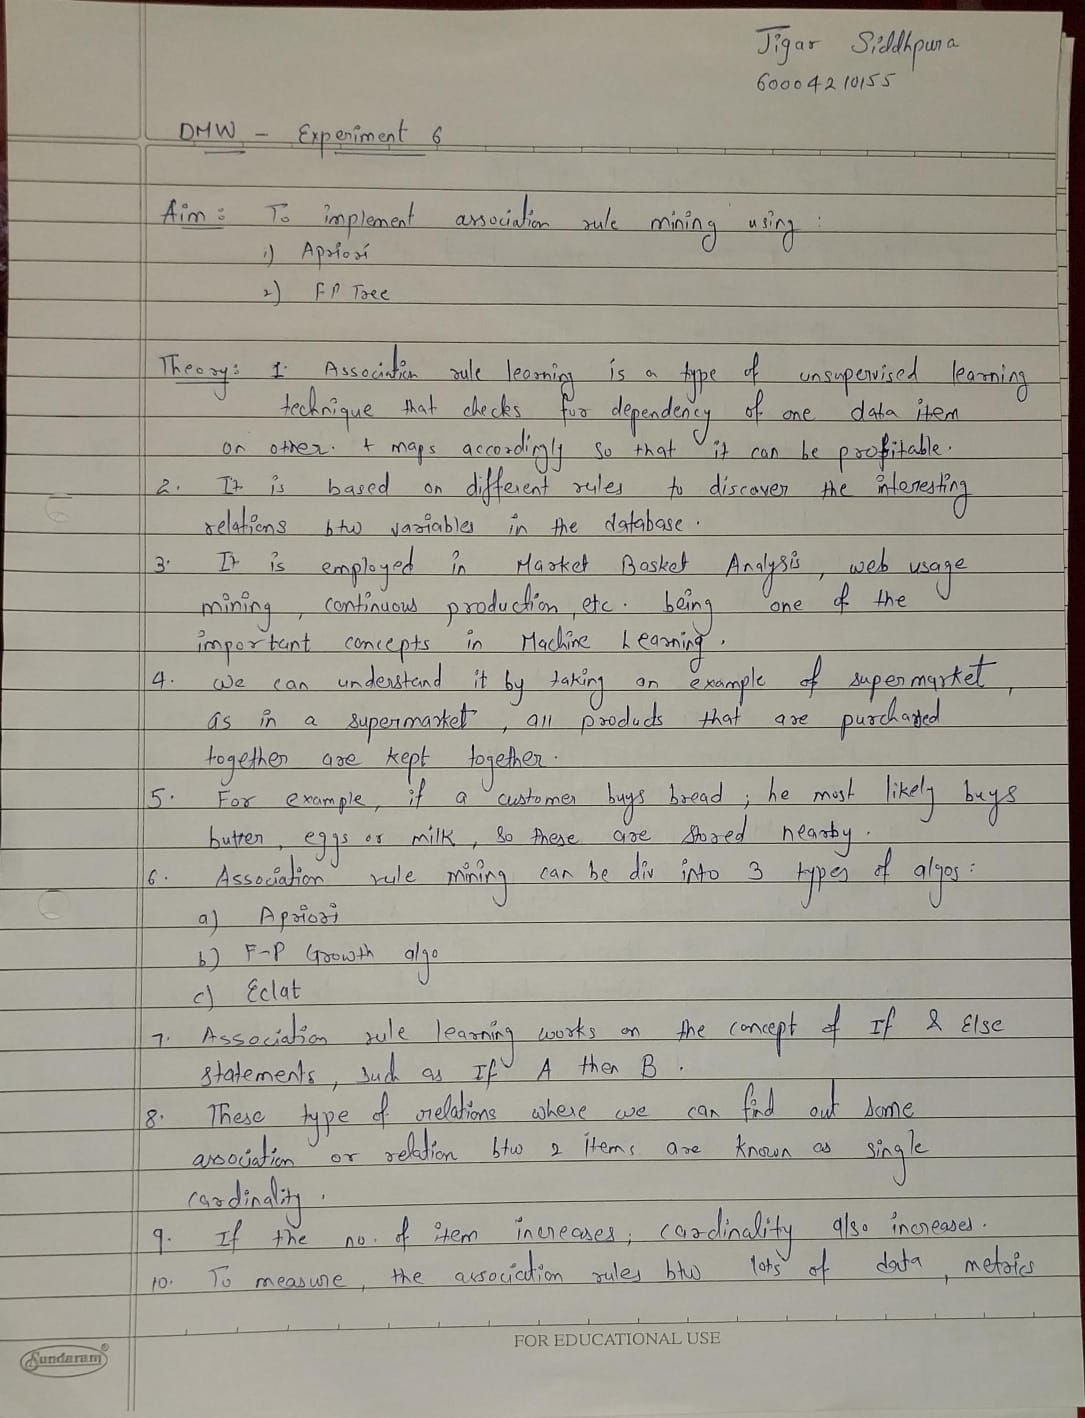 Jigar Siddhpura
60004210155
DMW - Experiment 6
Aim : To implement association rule mining using :
1) Apriori
2) FP Tree
Theory : 1. Association rule learning is a type of unsupervised learning
technique that checks for dependency of one data item
on other. + maps accordingly so that it can be profitable.
2. It is based on different rules to discover the interesting
relations btw variables in the database.
3. It is employed in Market Basket Analysis, web usage
mining, continuous production, etc. being one of the
important concepts in Machine Learning.
4. We can understand it by taking an example of supermarket,
as in a supermarket, all products that are purchased
together are kept together.
5. For example, if a customer buys bread ; he most likely buys
butter, eggs or milk, so these are stored nearby.
6. Association rule mining can be div into 3 types of algos :
a) Apriori
b) F-P Growth algo
c) Eclat
7. Association rule learning works on the concept of If & Else
statements, such as If A then B.
8. These type of relations where we can find out some
association or relation btw 2 items are known as single
cardinality.
9. If the no. of item increases ; cardinality also increases.
10. To measure, the association rules btw lots of data, metrics
FOR EDUCATIONAL USE
Sundaram®